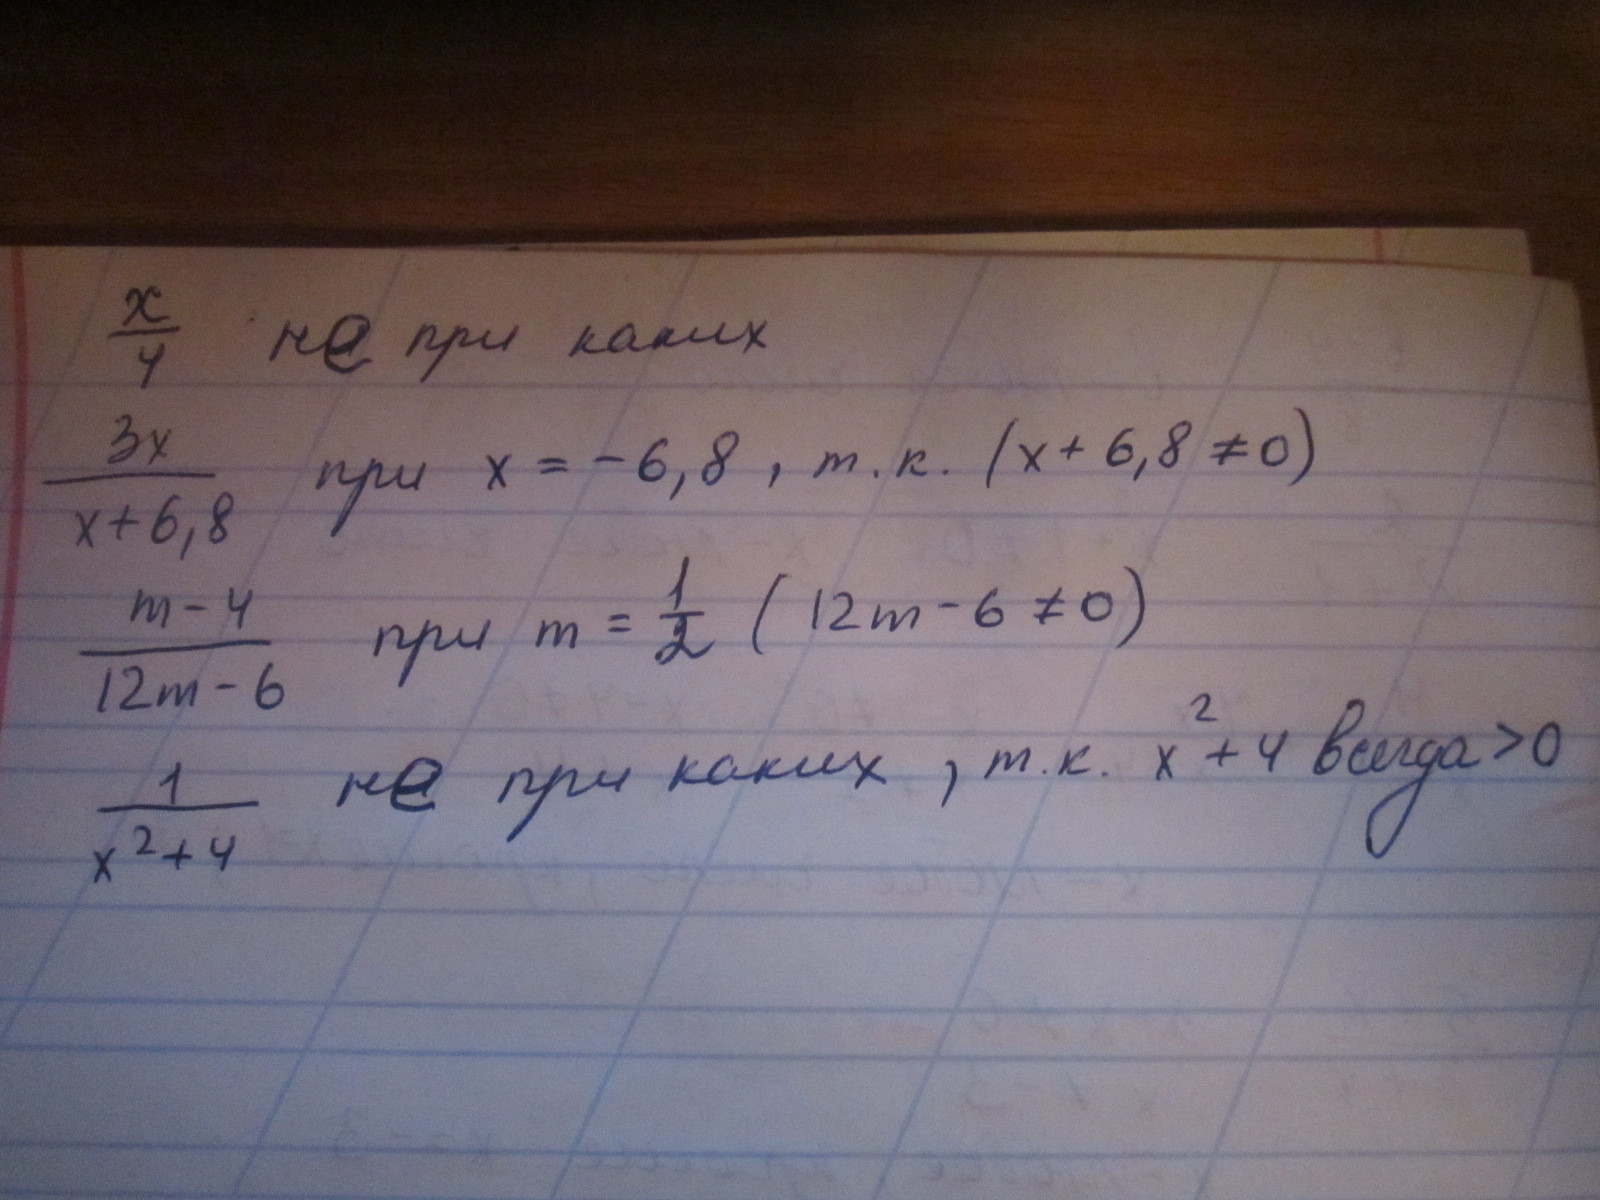 x/4 не при каких
3x/(x+6,8) при x = -6,8, т.к. (x+6,8 ≠ 0)
(m-4)/(12m-6) при m = 1/2 (12m-6 ≠ 0)
1/(x²+4) не при каких, т.к. x²+4 всегда > 0